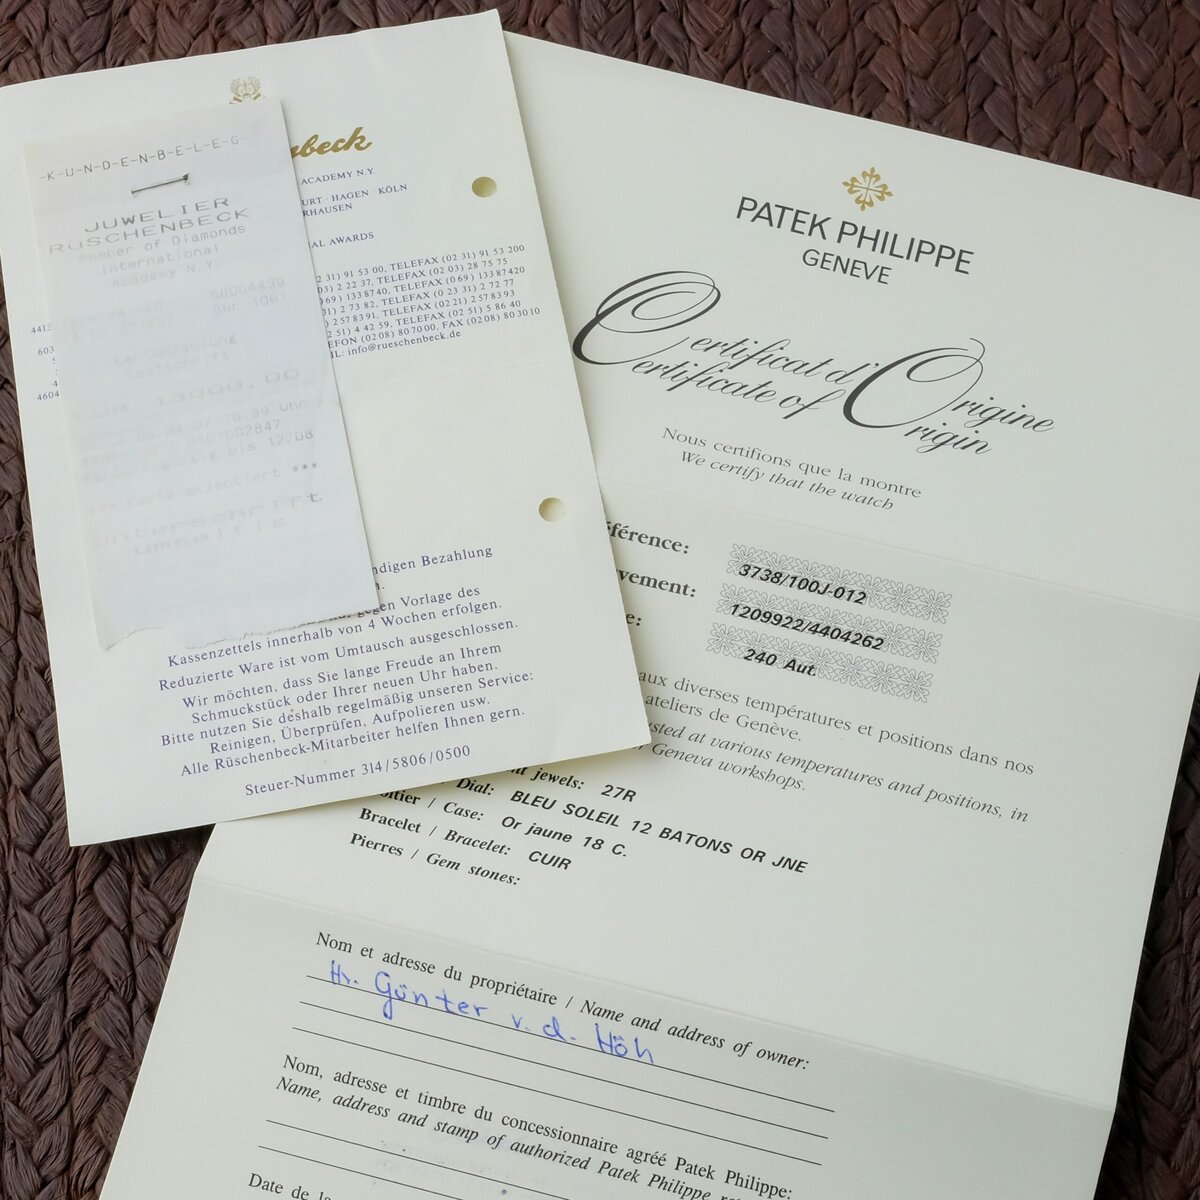 -K-U-N-D-E-N-B-E-L-E-G-
JUWELIER
RÜSCHENBECK
Member of Diamonds
International
Academy N.Y.
86004439
BNr 1091
Kartenzahlung
Lastschrift
13000,00
04.07 16:39 Uhr
gültig bis 12/08
Karte akzeptiert ***
Unterschrift
umseitig
nbeck
ACADEMY N.Y.
URT · HAGEN · KÖLN
RHAUSEN
AL AWARDS
2 31) 91 53 00, TELEFAX (02 31) 91 53 200
03) 2 22 37, TELEFAX (02 03) 28 75 75
69) 1 33 87 40, TELEFAX (0 69) 1 33 87 420
31) 2 73 82, TELEFAX (0 23 31) 2 72 77
2 57 83 91, TELEFAX (02 21) 2 57 83 93
51) 4 42 59, TELEFAX (02 51) 5 86 40
EFON (02 08) 80 70 00, FAX (02 08) 80 30 10
IL: info@rueschenbeck.de
4413
603
4604
ndigen Bezahlung
n.
gegen Vorlage des
Kassenzettels innerhalb von 4 Wochen erfolgen.
Reduzierte Ware ist vom Umtausch ausgeschlossen.
Wir möchten, dass Sie lange Freude an Ihrem
Schmuckstück oder Ihrer neuen Uhr haben.
Bitte nutzen Sie deshalb regelmäßig unseren Service:
Reinigen, Überprüfen, Aufpolieren usw.
Alle Rüschenbeck-Mitarbeiter helfen Ihnen gern.
Steuer-Nummer 314/5806/0500
PATEK PHILIPPE
GENEVE
Certificat d'Origine
Certificate of Origin
Nous certifions que la montre
We certify that the watch
férence: 3738/100J-012
vement: 1209922/4404262
e: 240 Aut.
aux diverses températures et positions dans nos
ateliers de Genève.
usted at various temperatures and positions, in
r Geneva workshops.
jewels: 27R
Dial: BLEU SOLEIL 12 BATONS OR JNE
oîtier / Case: Or jaune 18 C.
Bracelet / Bracelet: CUIR
Pierres / Gem stones:
Nom et adresse du propriétaire / Name and address of owner:
Hr. Günter v. d. Höh
Nom, adresse et timbre du concessionnaire agréé Patek Philippe:
Name, address and stamp of authorized Patek Philippe re
Date de la